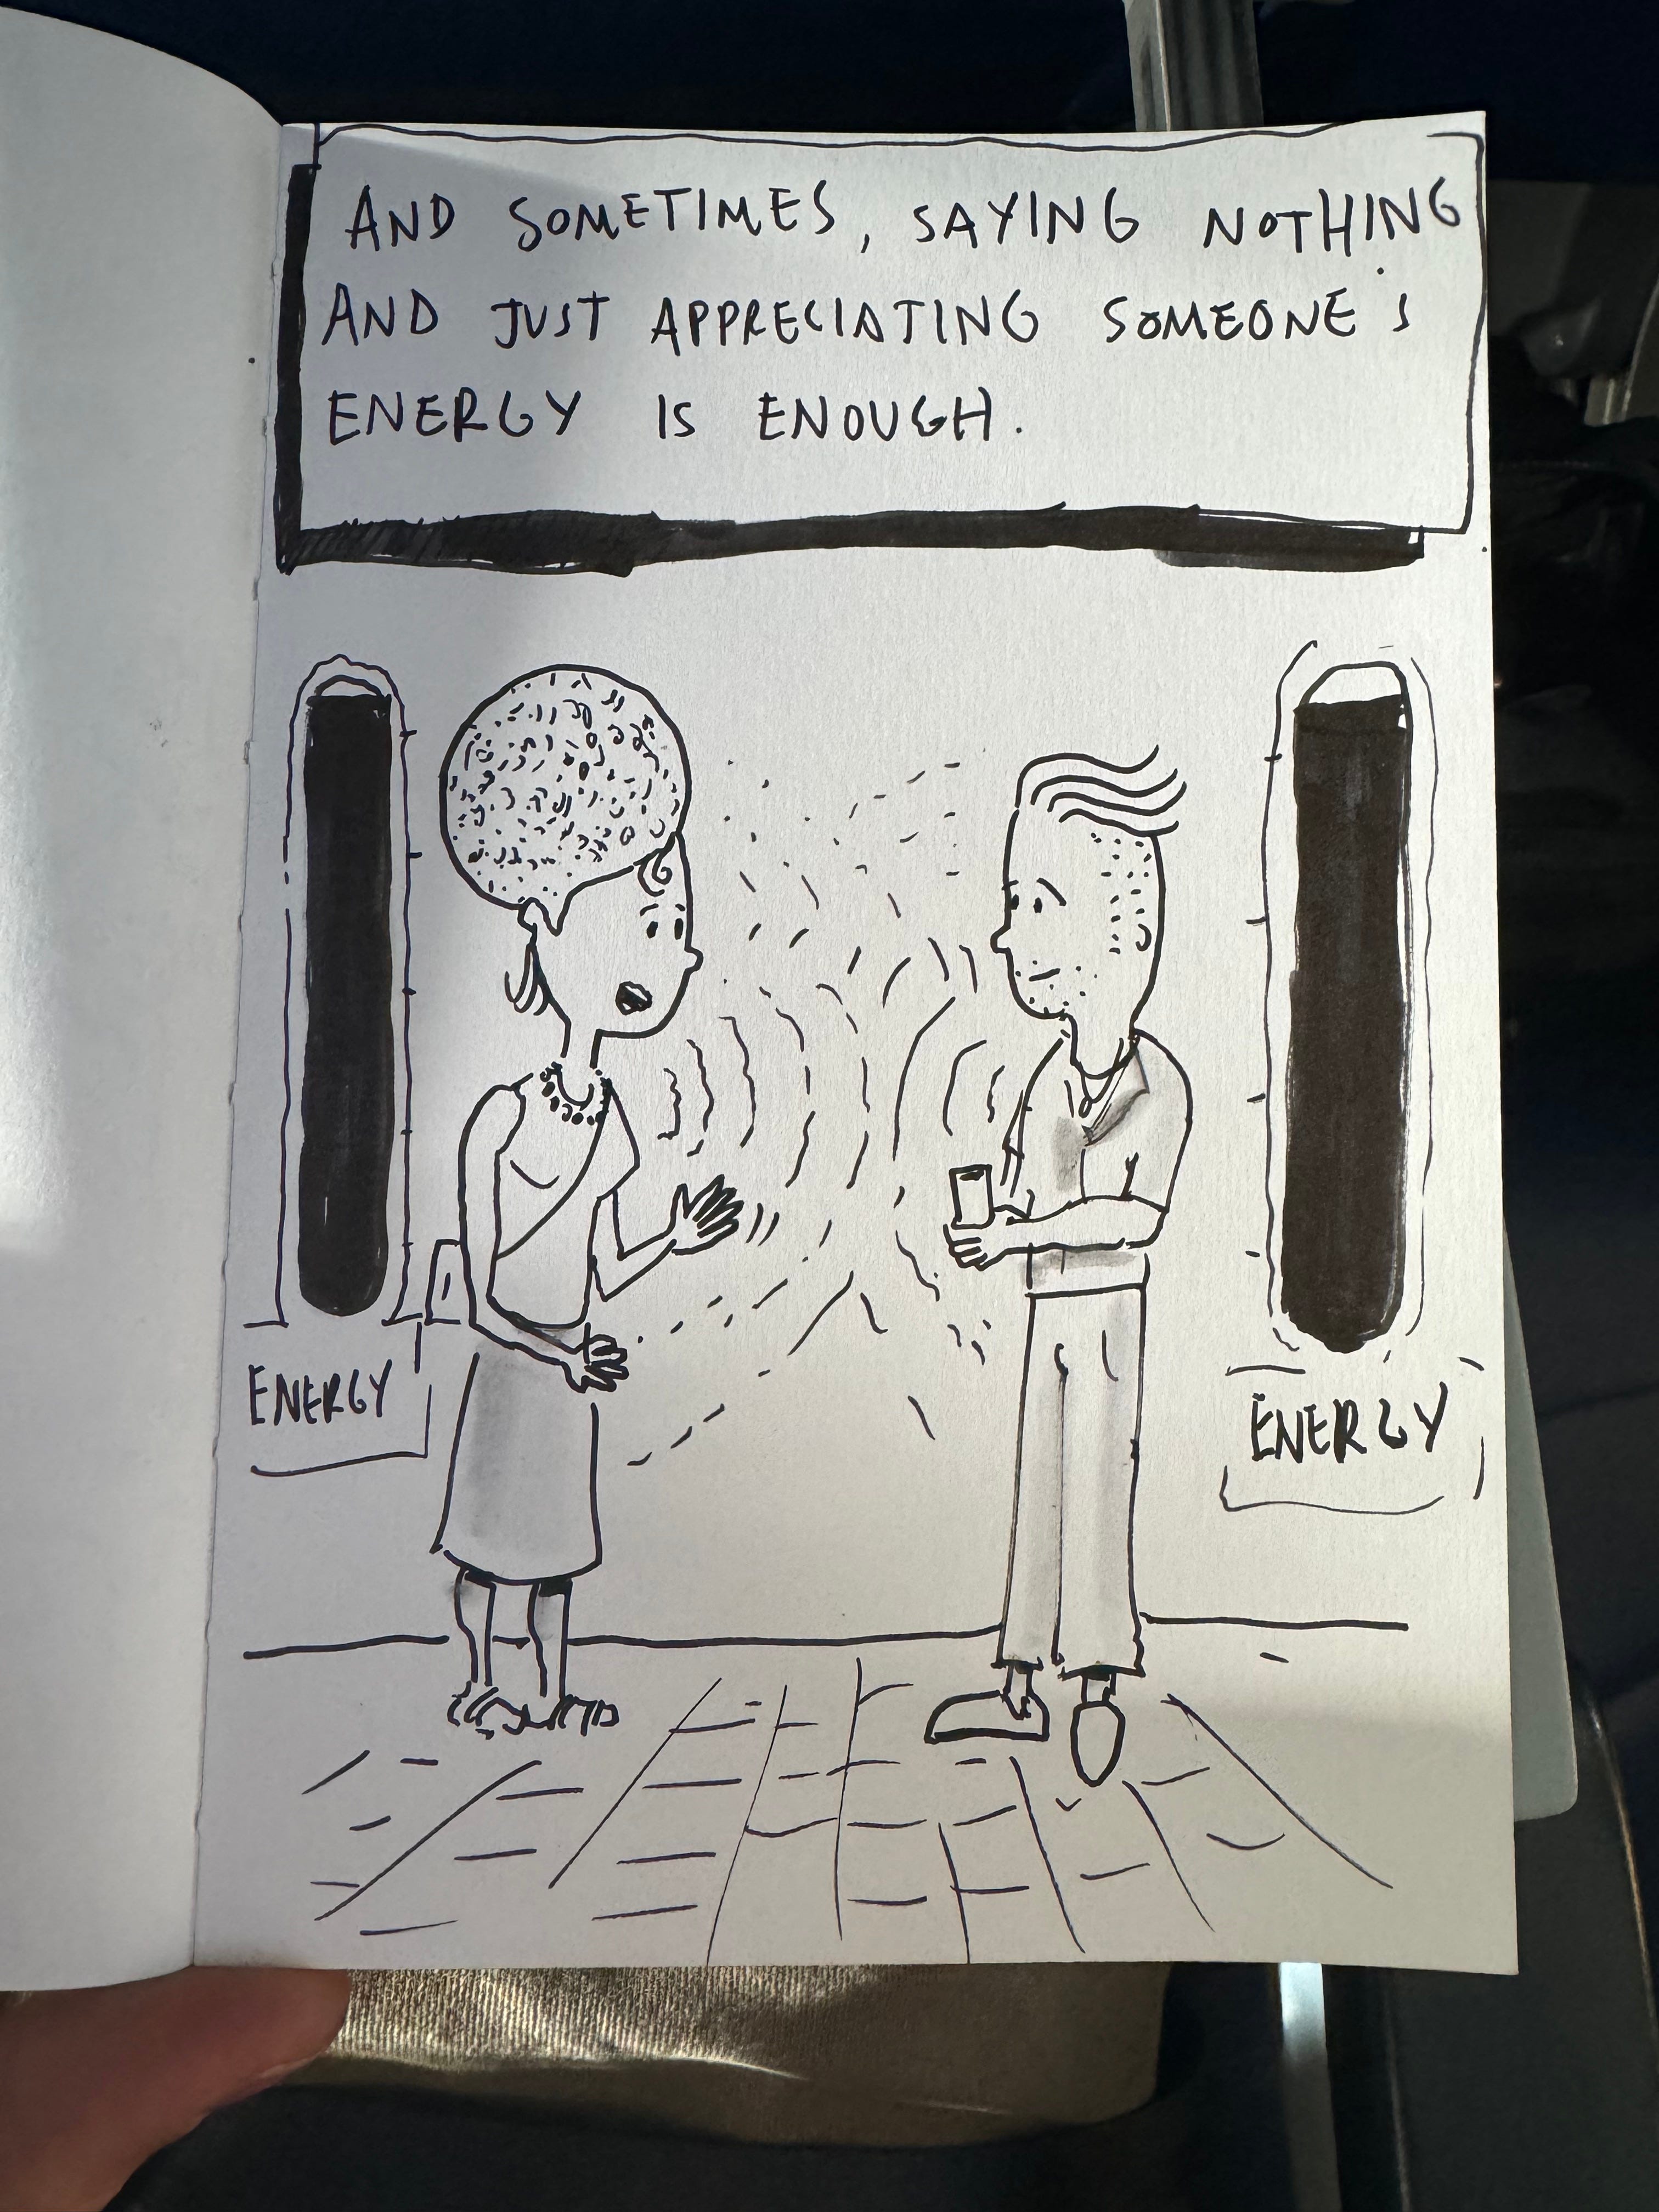 AND SOMETIMES, SAYING NOTHING
AND JUST APPRECIATING SOMEONE'S
ENERGY IS ENOUGH.
ENERGY
ENERGY